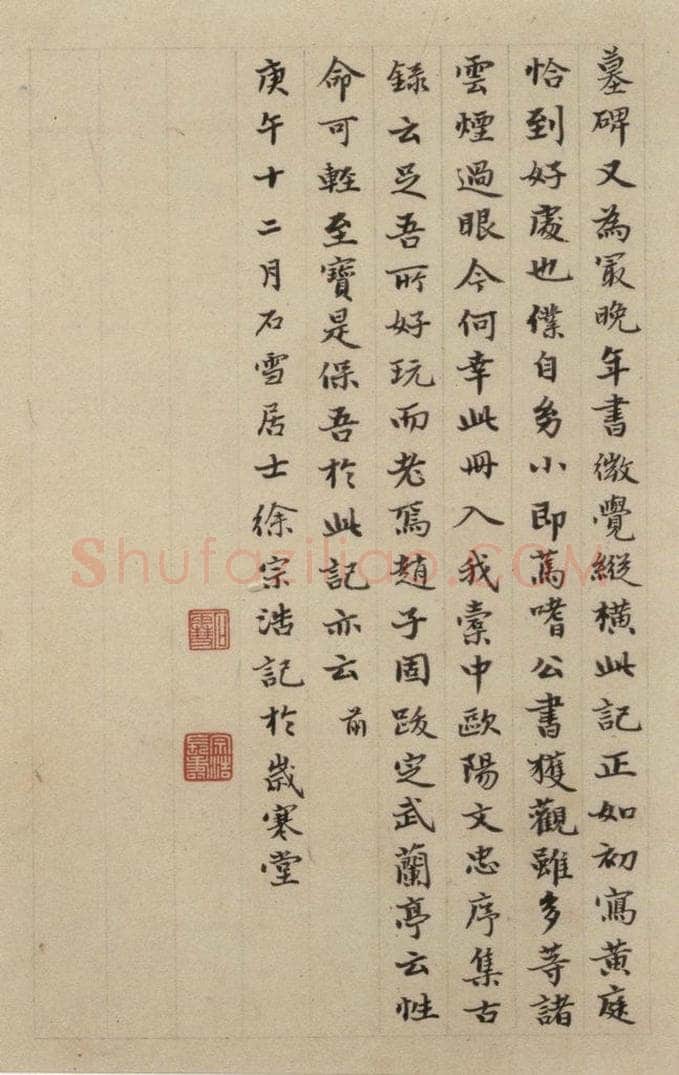 墓碑又為冣晚年書微覺縱橫此記正如初寫黃庭
恰到好處也僕自㓜小即篤嗜公書獲觀雖多等諸
雲煙過眼今何幸此冊入我橐中歐陽文忠序集古
錄云足吾所好玩而老焉趙子固跋定武蘭亭云性
命可輕至寶是保吾於此記亦云 前
庚午十二月石雪居士徐宗浩記於歲寒堂
石雪
宗浩長壽
Shufaziliao.COM